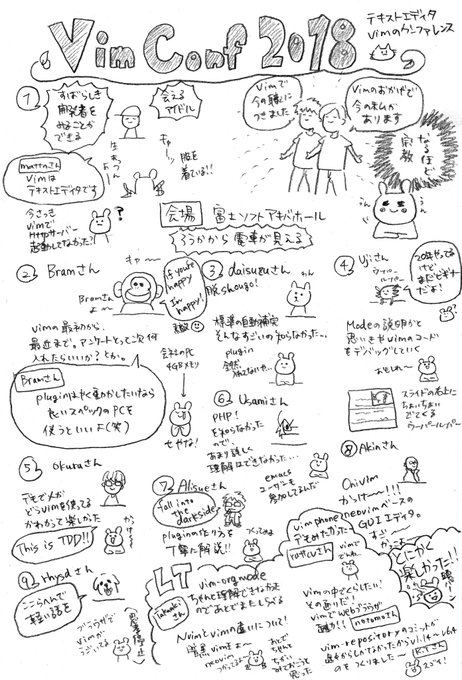 Vim Conf 2018
テキストエディタ
Vimのカンファレンス
①
すばらしき
開発者を
みることが
できる
会える
アイドル
Vimで
今の職に
つきました
Vimのおかげで
今の私が
あります
なるほど
宗教
うん
うん
mattnさん
Vimは
テキストエディタです
服を
着ている!!
今さっき
Vimで
Httpサーバー
起動してなかった?!
会場
富士ソフトアキバホール
ろうかから電車が見える
② Bramさん
キャー
Bramさーん
よー
If you're
happy
I'm
happy!
Vimの最初から
最近まで。アンケートとって次何
入れたらいい?とか。
Bramさん
pluginはやく動かしたいなら
むしろスペックのPCを
使うといいよ(笑)
会社のPC
4GBメモリ
せやな!
③ daisuzuさん
脱shougo!
標準の自動補完
そんなすごいの知らなかった…
plugin
④ Ujiさん
ウーパールーパー
20年やってる
けど、
まだビギナー
だよ!
Modeの説明かと
思いきやVimのコード
をデバッグしていく
おもしれ〜
スライドの右上に
ちょいちょい
でてくる
ウーパールーパー
⑤ Okuraさん
デモでメが
どうVimを使ってる
かわかって楽しかった
This is TDD!!
⑥ Usamiさん
PHP!
を知らなかった
ので、
あまり詳しく
理解はできなかった…
emacs
ユーザーも
参加してるんだ
⑦ Alisueさん
fall into
the darkside
pluginの作り方を
丁寧に解説!!
⑧ Akinさん
Onivim
かっけ〜!!!
neovimベースの
GUIエディタ。
⑨ thgsdさん
ここらへんで
軽い話を
ブラウザで
Vimが
うごいてる
LT
vim-orgmode
ちゃんと理解できなかった
のであとでまたしらべる
NvimとVimの違いについて!
neovim
vimphone
デモみたかった
Vimの中でくらしたい!
その通りだ!
VimでWebブラウザ
vim-repositoryのコミットが
のをつくりました〜
とにかく
楽しかった!!